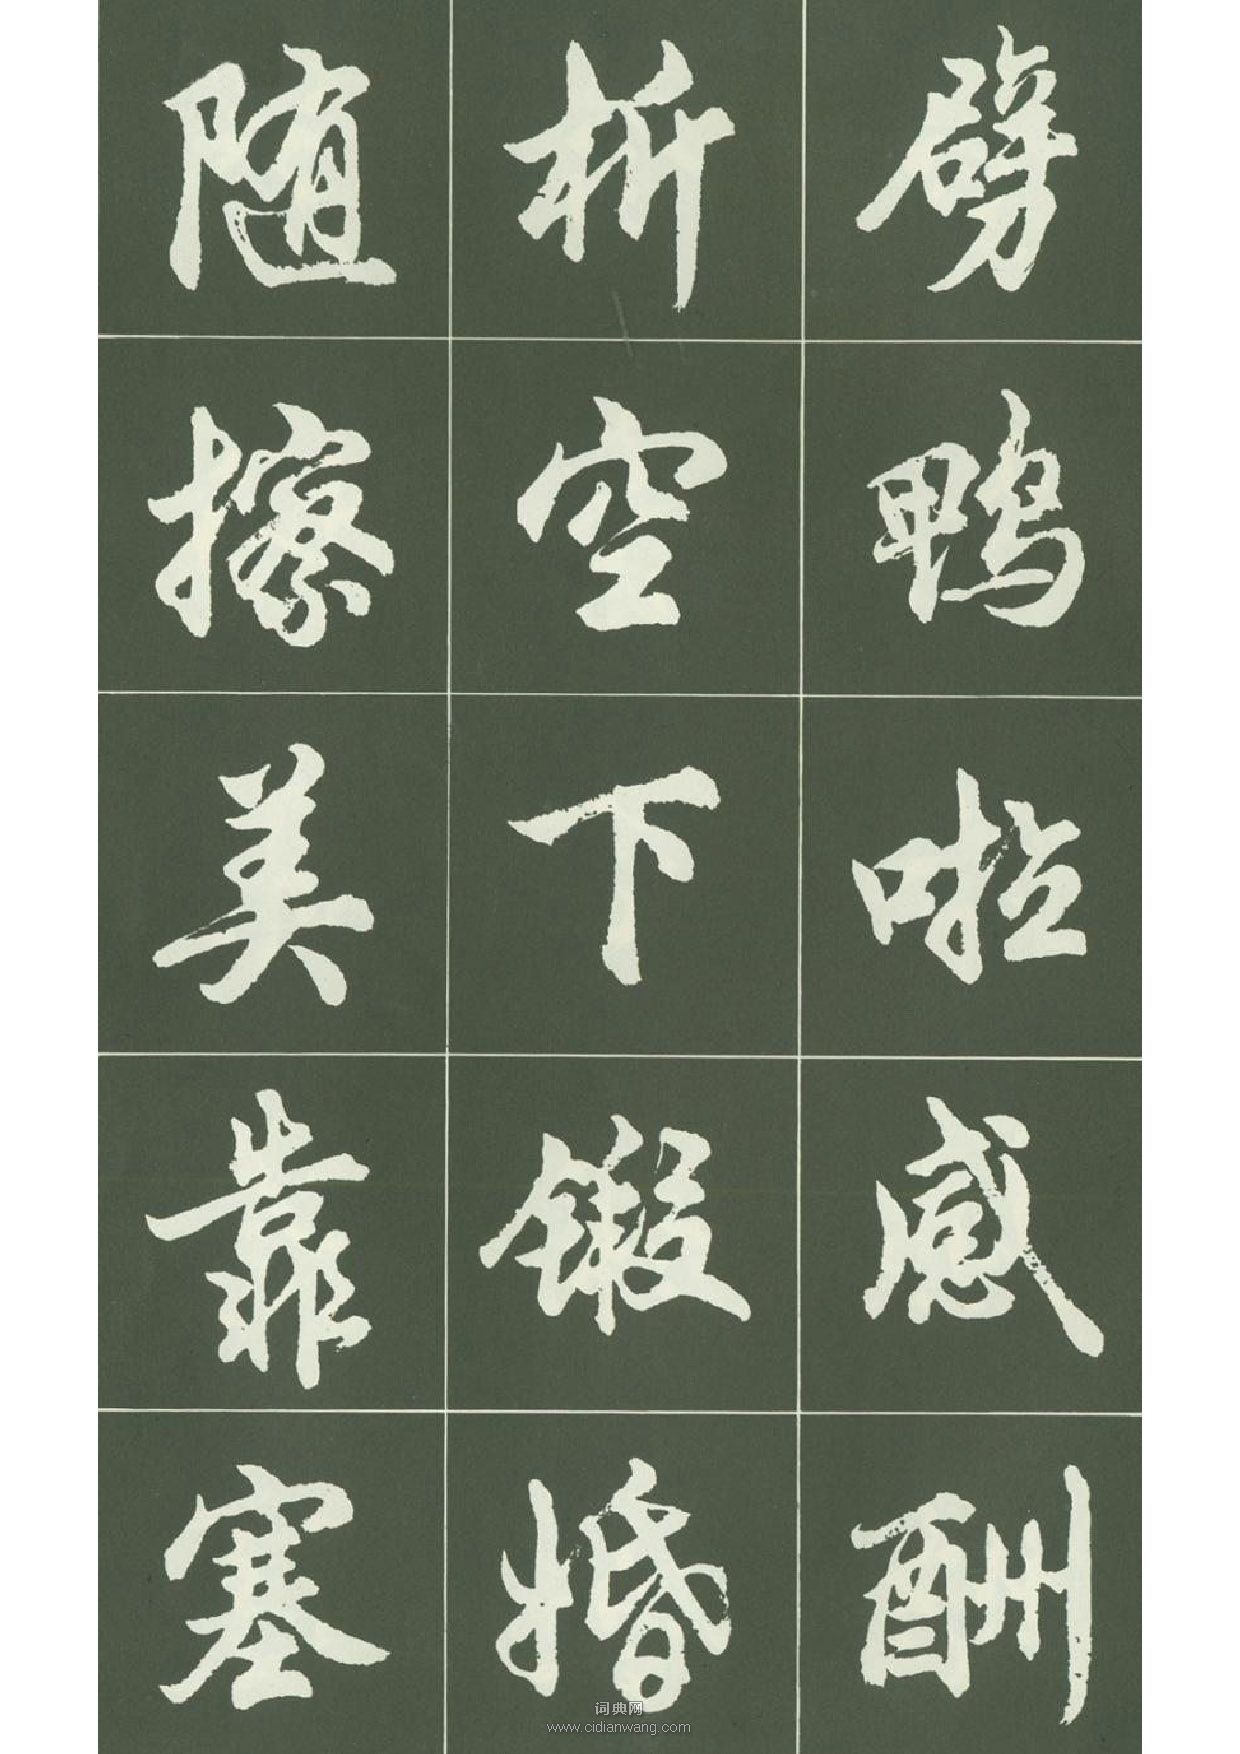 劈鸭啦感酬
析空下锻婚
随擦美靠塞
词典网
www.cidianwang.com